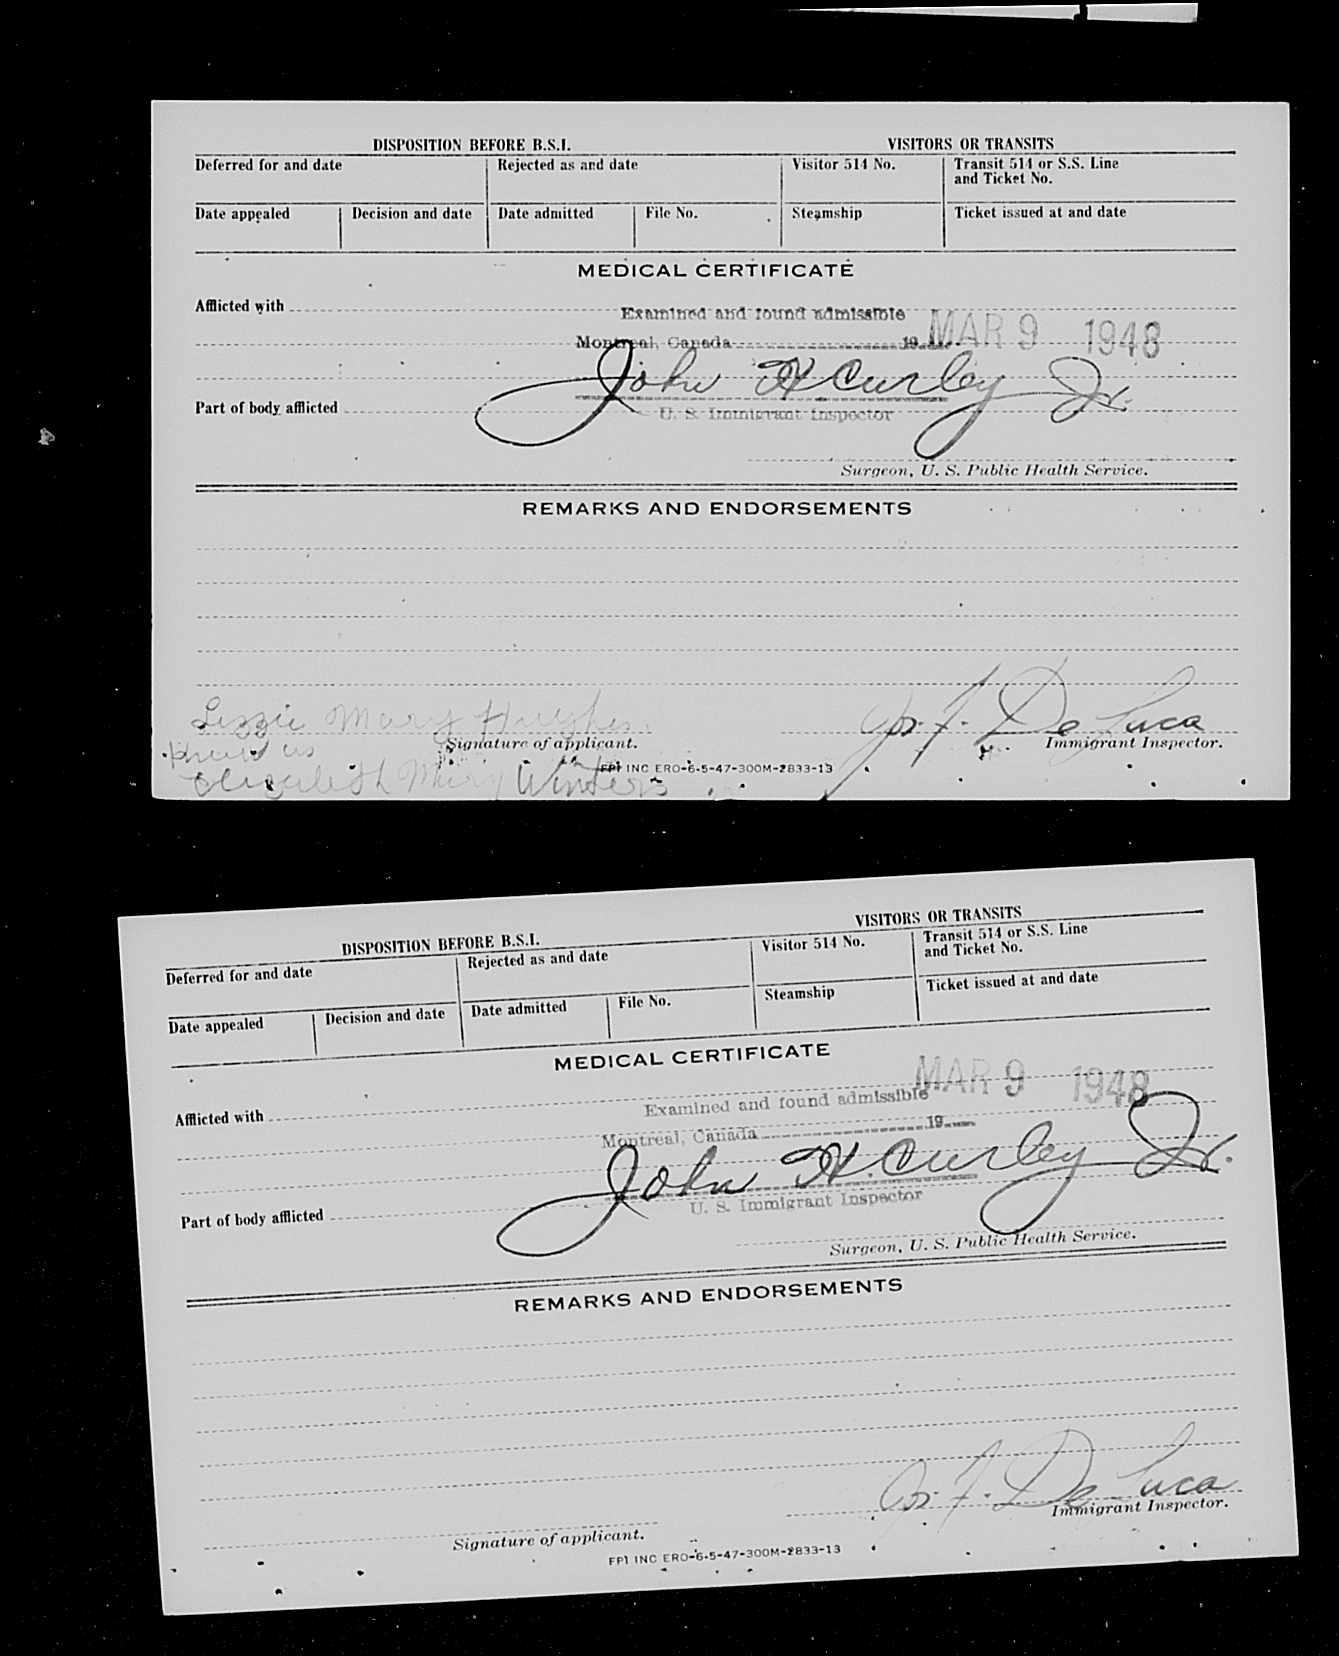 DISPOSITION BEFORE B.S.I. VISITORS OR TRANSITS
Deferred for and date Rejected as and date Visitor 514 No. Transit 514 or S.S. Line and Ticket No.
Date appealed Decision and date Date admitted File No. Steamship Ticket issued at and date
MEDICAL CERTIFICATE
Afflicted with
Examined and found admissible
Montreal, Canada 19 MAR 9 1948
John H Curley Jr.
Part of body afflicted
U. S. Immigrant Inspector
Surgeon, U. S. Public Health Service.
REMARKS AND ENDORSEMENTS
Lizzie Mary Hughes Jos. F. De Luca
Signature of applicant. Immigrant Inspector.
known as
FPI INC ERO-6-5-47-300M-2833-13
Elizabeth Mary Winters
DISPOSITION BEFORE B.S.I. VISITORS OR TRANSITS
Deferred for and date Rejected as and date Visitor 514 No. Transit 514 or S.S. Line and Ticket No.
Date appealed Decision and date Date admitted File No. Steamship Ticket issued at and date
MEDICAL CERTIFICATE
MAR 9 1948
Afflicted with
Examined and found admissible
Montreal, Canada 19
John H Curley Jr.
Part of body afflicted
U. S. Immigrant Inspector
Surgeon, U. S. Public Health Service.
REMARKS AND ENDORSEMENTS
Jos. F. De Luca
Signature of applicant. Immigrant Inspector.
FPI INC ERO-6-5-47-300M-2833-13